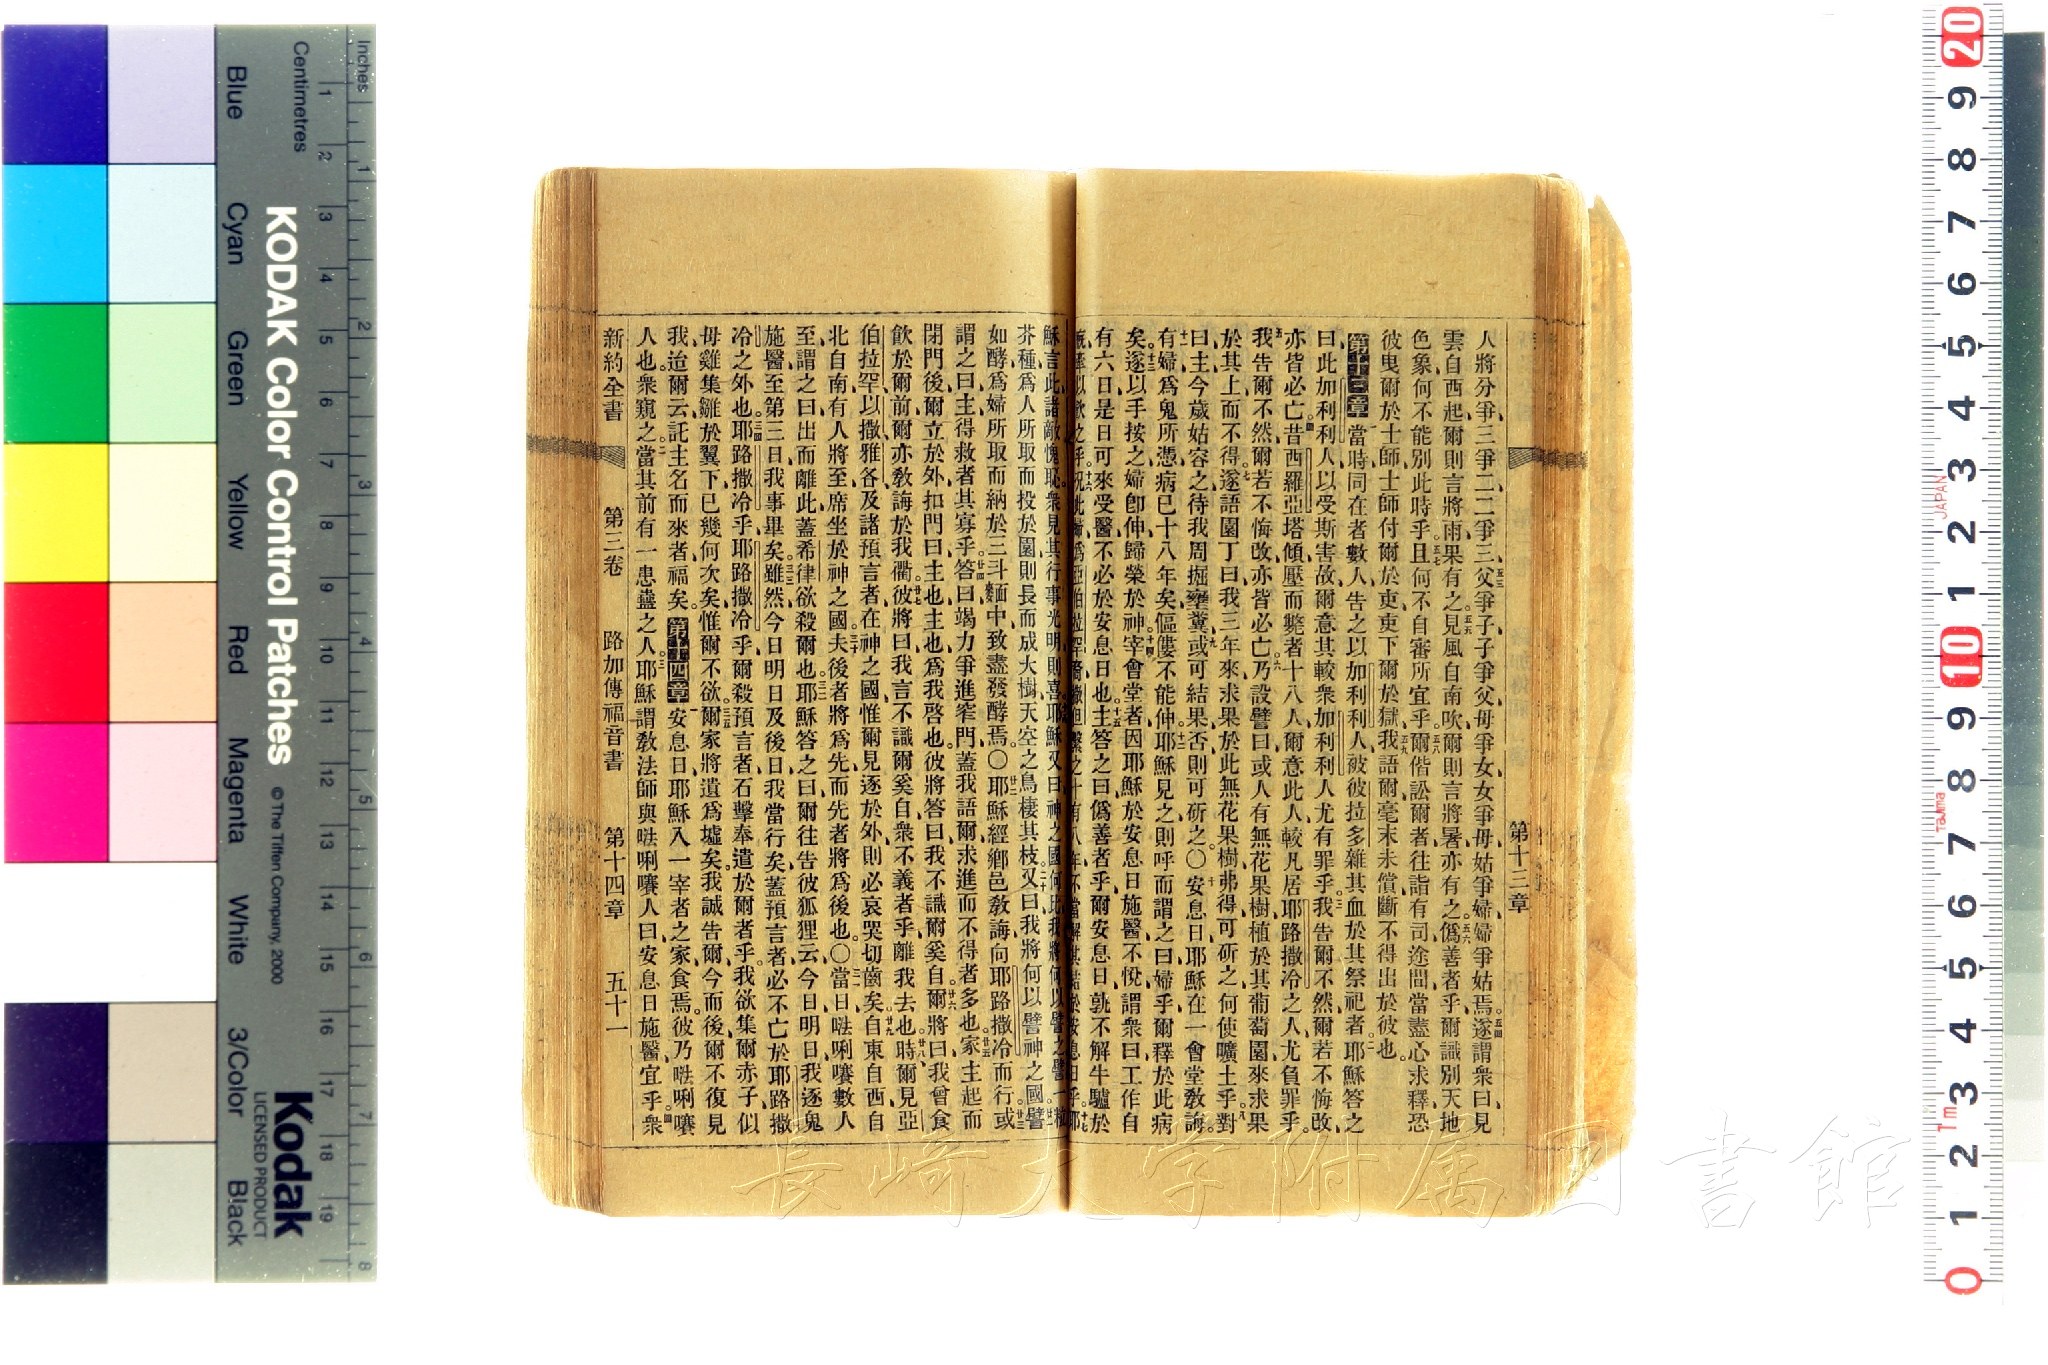 人將分爭、三爭二、二爭三、父爭子、子爭父、母爭女、女爭母、姑爭婦、婦爭姑焉。遂謂衆曰、見
雲自西起、爾則言將雨、果有之、見風自南吹、爾則言將暑、亦有之。僞善者乎、爾識別天地
色象、何不能別此時乎。且何不自審所宜乎。爾偕訟爾者往詣有司、途間當盡心求釋、恐
彼曳爾於士師、士師付爾於吏、吏下爾於獄。我語爾、毫末未償、斷不得出於彼也。
第十三章 當時同在者數人、告之以加利利人、被彼拉多雜其血於其祭祀者。耶穌答之
曰、此加利利人以受斯害、故爾意其較衆加利利人尤有罪乎。我告爾、不然、爾若不悔改、
亦皆必亡。昔西羅亞塔傾、壓而斃者十八人、爾意此人較凡居耶路撒冷之人尤負罪乎。
我告爾、不然、爾若不悔改、亦皆必亡。乃設譬曰、或人有無花果樹、植於其葡萄園、來求果
於其上而不得。遂語園丁曰、我三年來求果於此無花果樹弗得、可斫之、何使曠土乎。對
曰、主、今歲姑容之、待我周掘壅糞、或可結果、否則可斫之。〇安息日、耶穌在一會堂敎誨。
有婦爲鬼所憑、病已十八年矣、傴僂不能伸。耶穌見之、則呼而謂之曰、婦乎、爾釋於此病
矣。遂以手按之、婦卽伸、歸榮於神。宰會堂者、因耶穌於安息日施醫、不悅、謂衆曰、工作自
有六日、是日可來受醫、不必於安息日也。主答之曰、僞善者乎、爾安息日孰不解牛驢於
穌言此、諸敵愧恥、衆見其行事光明則喜。耶穌又曰、神之國何比、我將何以譬之、譬一粒
芥種、爲人所取而投於園、則長而成大樹、天空之鳥棲其枝。又曰、我將何以譬神之國、譬
如酵、爲婦所取而納於三斗麵中、致盡發酵焉。〇耶穌經鄉邑敎誨、向耶路撒冷而行。或
謂之曰、主、得救者其寡乎。答曰、竭力爭進窄門、蓋我語爾、求進而不得者多也。家主起而
閉門後、爾立於外、扣門曰、主也、主也、爲我啓也、彼將答曰、我不識爾奚自。爾將曰、我曾食
飮於爾前、爾亦敎誨於我衢。彼將曰、我言不識爾奚自、衆不義者乎、離我去也。時爾見亞
伯拉罕、以撒、雅各、及諸預言者在神之國、惟爾見逐於外、則必哀哭切齒矣。自東自西、自
北自南、有人將至、席坐於神之國。夫後者將爲先、而先者將爲後也。〇當日、㕸唎㘔數人
至、謂之曰、出而離此、蓋希律欲殺爾也。耶穌答之曰、爾往告彼狐狸云、今日明日、我逐鬼
施醫、至第三日我事畢矣。雖然、今日明日及後日、我當行矣、蓋預言者必不亡於耶路撒
冷之外也。耶路撒冷乎、耶路撒冷乎、爾殺預言者、石擊奉遣於爾者乎、我欲集爾赤子、似
母雞集雛於翼下、已幾何次矣、惟爾不欲。爾家將遺爲墟矣、我誠告爾、今而後、爾不復見
我、迨爾云、託主名而來者福矣。第十四章 安息日、耶穌入一宰者之家食焉、彼乃㕸唎㘔
人也。衆窺之。當其前有一患蠱之人。耶穌謂敎法師與㕸唎㘔人曰、安息日施醫、宜乎。衆
第十三章
新約全書 第三卷 路加傳福音書 第十四章 五十一
Inches
Centimetres
Blue Cyan Green Yellow Red Magenta White 3/Color Black
KODAK Color Control Patches © The Tiffen Company, 2000
Kodak
LICENSED PRODUCT
長崎大学附属図書館
JAPAN
Tajima